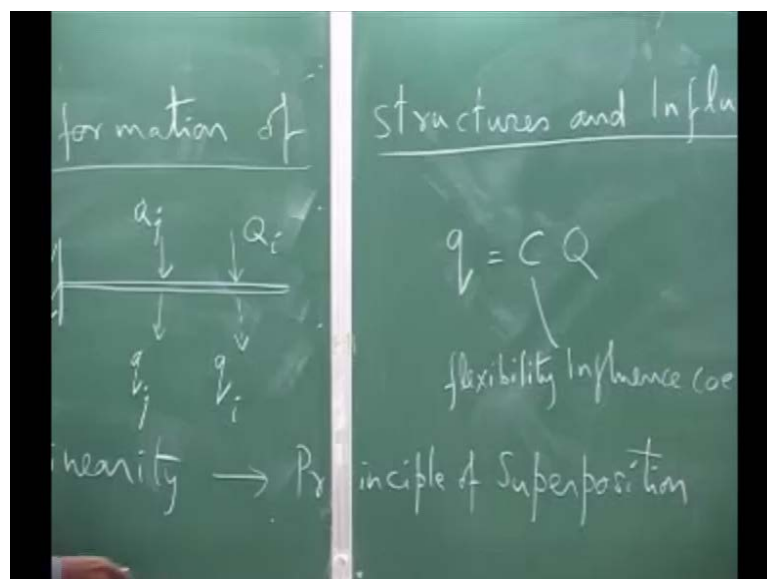 formation of structures and Influ
Qj Qi
q = C Q
qj qi
flexibility Influence coe
inearity → Principle of Superposition